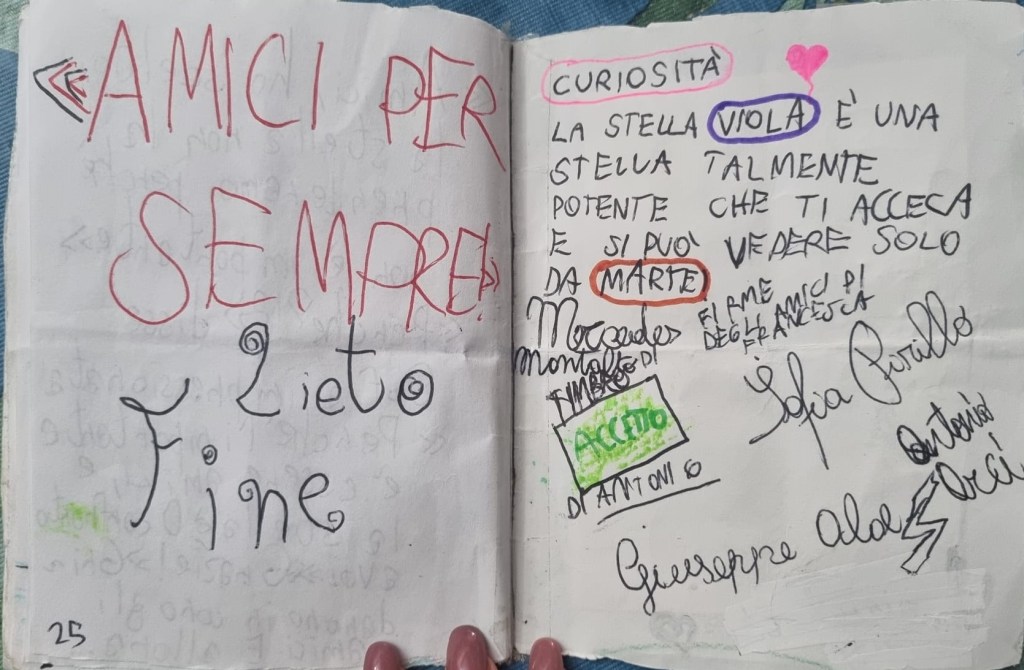 «AMICI PER
SEMPRE!»
Lieto
Fine
25
CURIOSITÀ
LA STELLA VIOLA È UNA
STELLA TALMENTE
POTENTE CHE TI ACCECA
E SI PUÒ VEDERE SOLO
DA MARTE
FIRME
DEGLI AMICI DI
FRANCESCA
Mercedes
Montalto
TIMBRO DI
ACCETTO
DI ANTONIO
Sofia
Antonio
Giuseppe